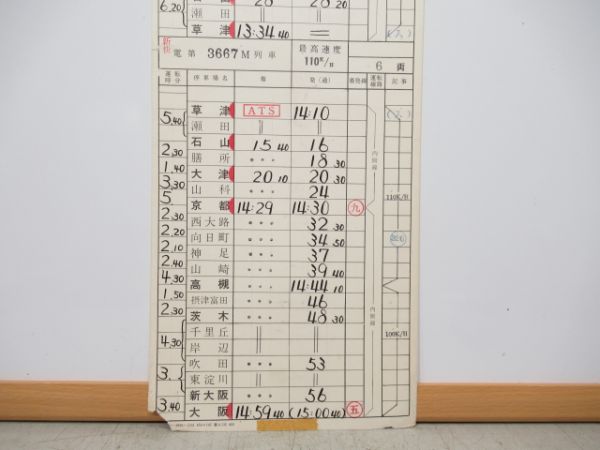 6.20 瀬田 〃 〃
草津 13:34 40 ＝ (7)
新快 電第 3667M 列車 最高速度 110K/H 6 両
運転時分 停車場名 着 発(通) 着発線 運転線路 記事
草津 ATS 14:10
5.40 瀬田 ‖ ‖
石山 15 40 16
2.30 膳所 ・・・ 18 30
1.40 大津 20 10 20 30
3.30 山科 ・・・ 24
5 京都 14:29 14:30 九 110K/H
2.30 西大路 ・・・ 32 30
2.20 向日町 ・・・ 34 50
2.10 神足 ・・・ 37
2.40 山崎 ・・・ 39 40
4.30 高槻 ・・・ 14:44 10
1.50 摂津富田 ・・・ 46
2.30 茨木 ・・・ 48 30
千里丘 ‖ ‖ 100K/H
4.30 岸辺 ‖ ‖
吹田 ・・・ 53
3. 東淀川 ‖ ‖
新大阪 ・・・ 56
3.40 大阪 14:59 40 (15:00 40) 五
内側線
内側線